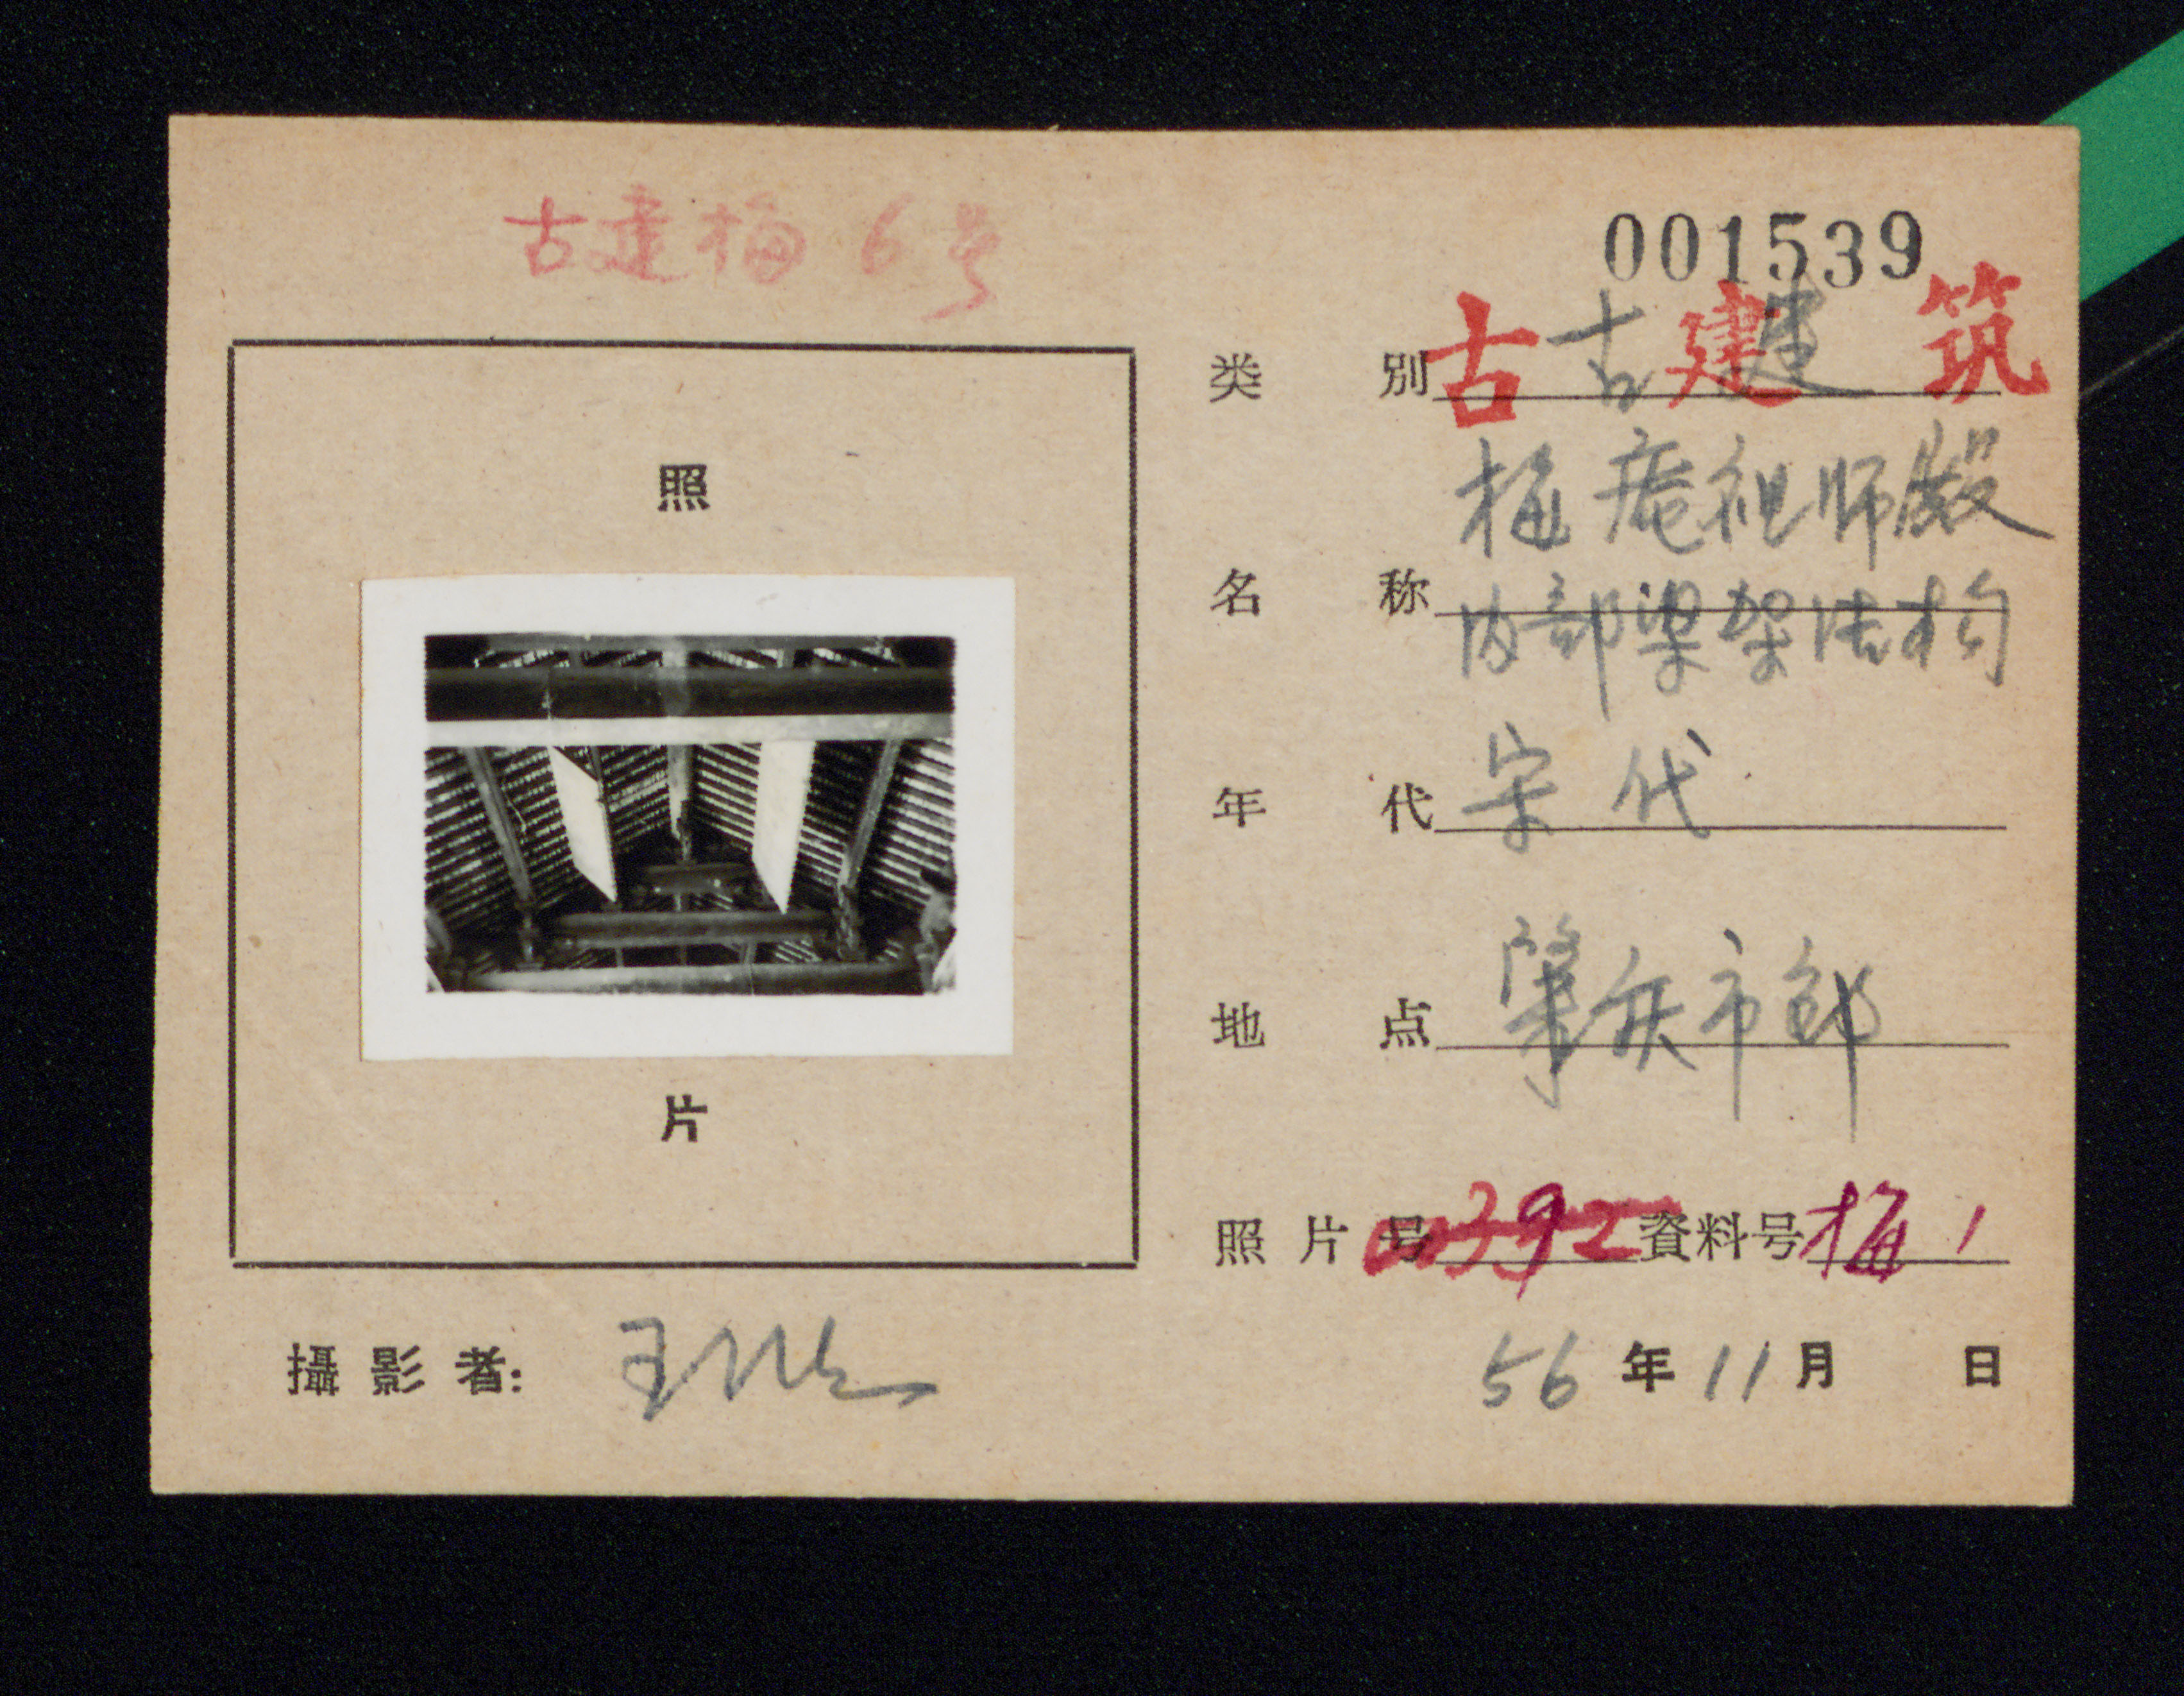 古建梅 6号
001539
类别 古建 古建筑
梅庵祖师殿
名称 内部梁架结构
年代 宋代
地点 肇庆市郊
照片
照片号 392 資料号 梅1
攝影者: 王
56年11月 日